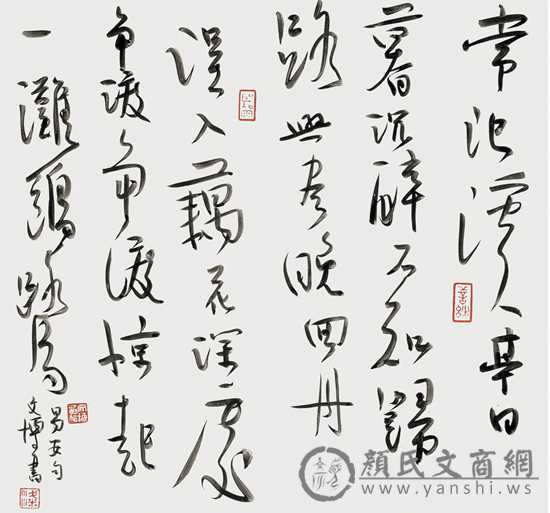 常記溪亭日
暮沉醉不知歸
路興盡晚回舟
誤入藕花深處
争渡争渡惊起
一灘鷗鷺
易安句
文博書
顏氏文商網
www.yanshi.ws